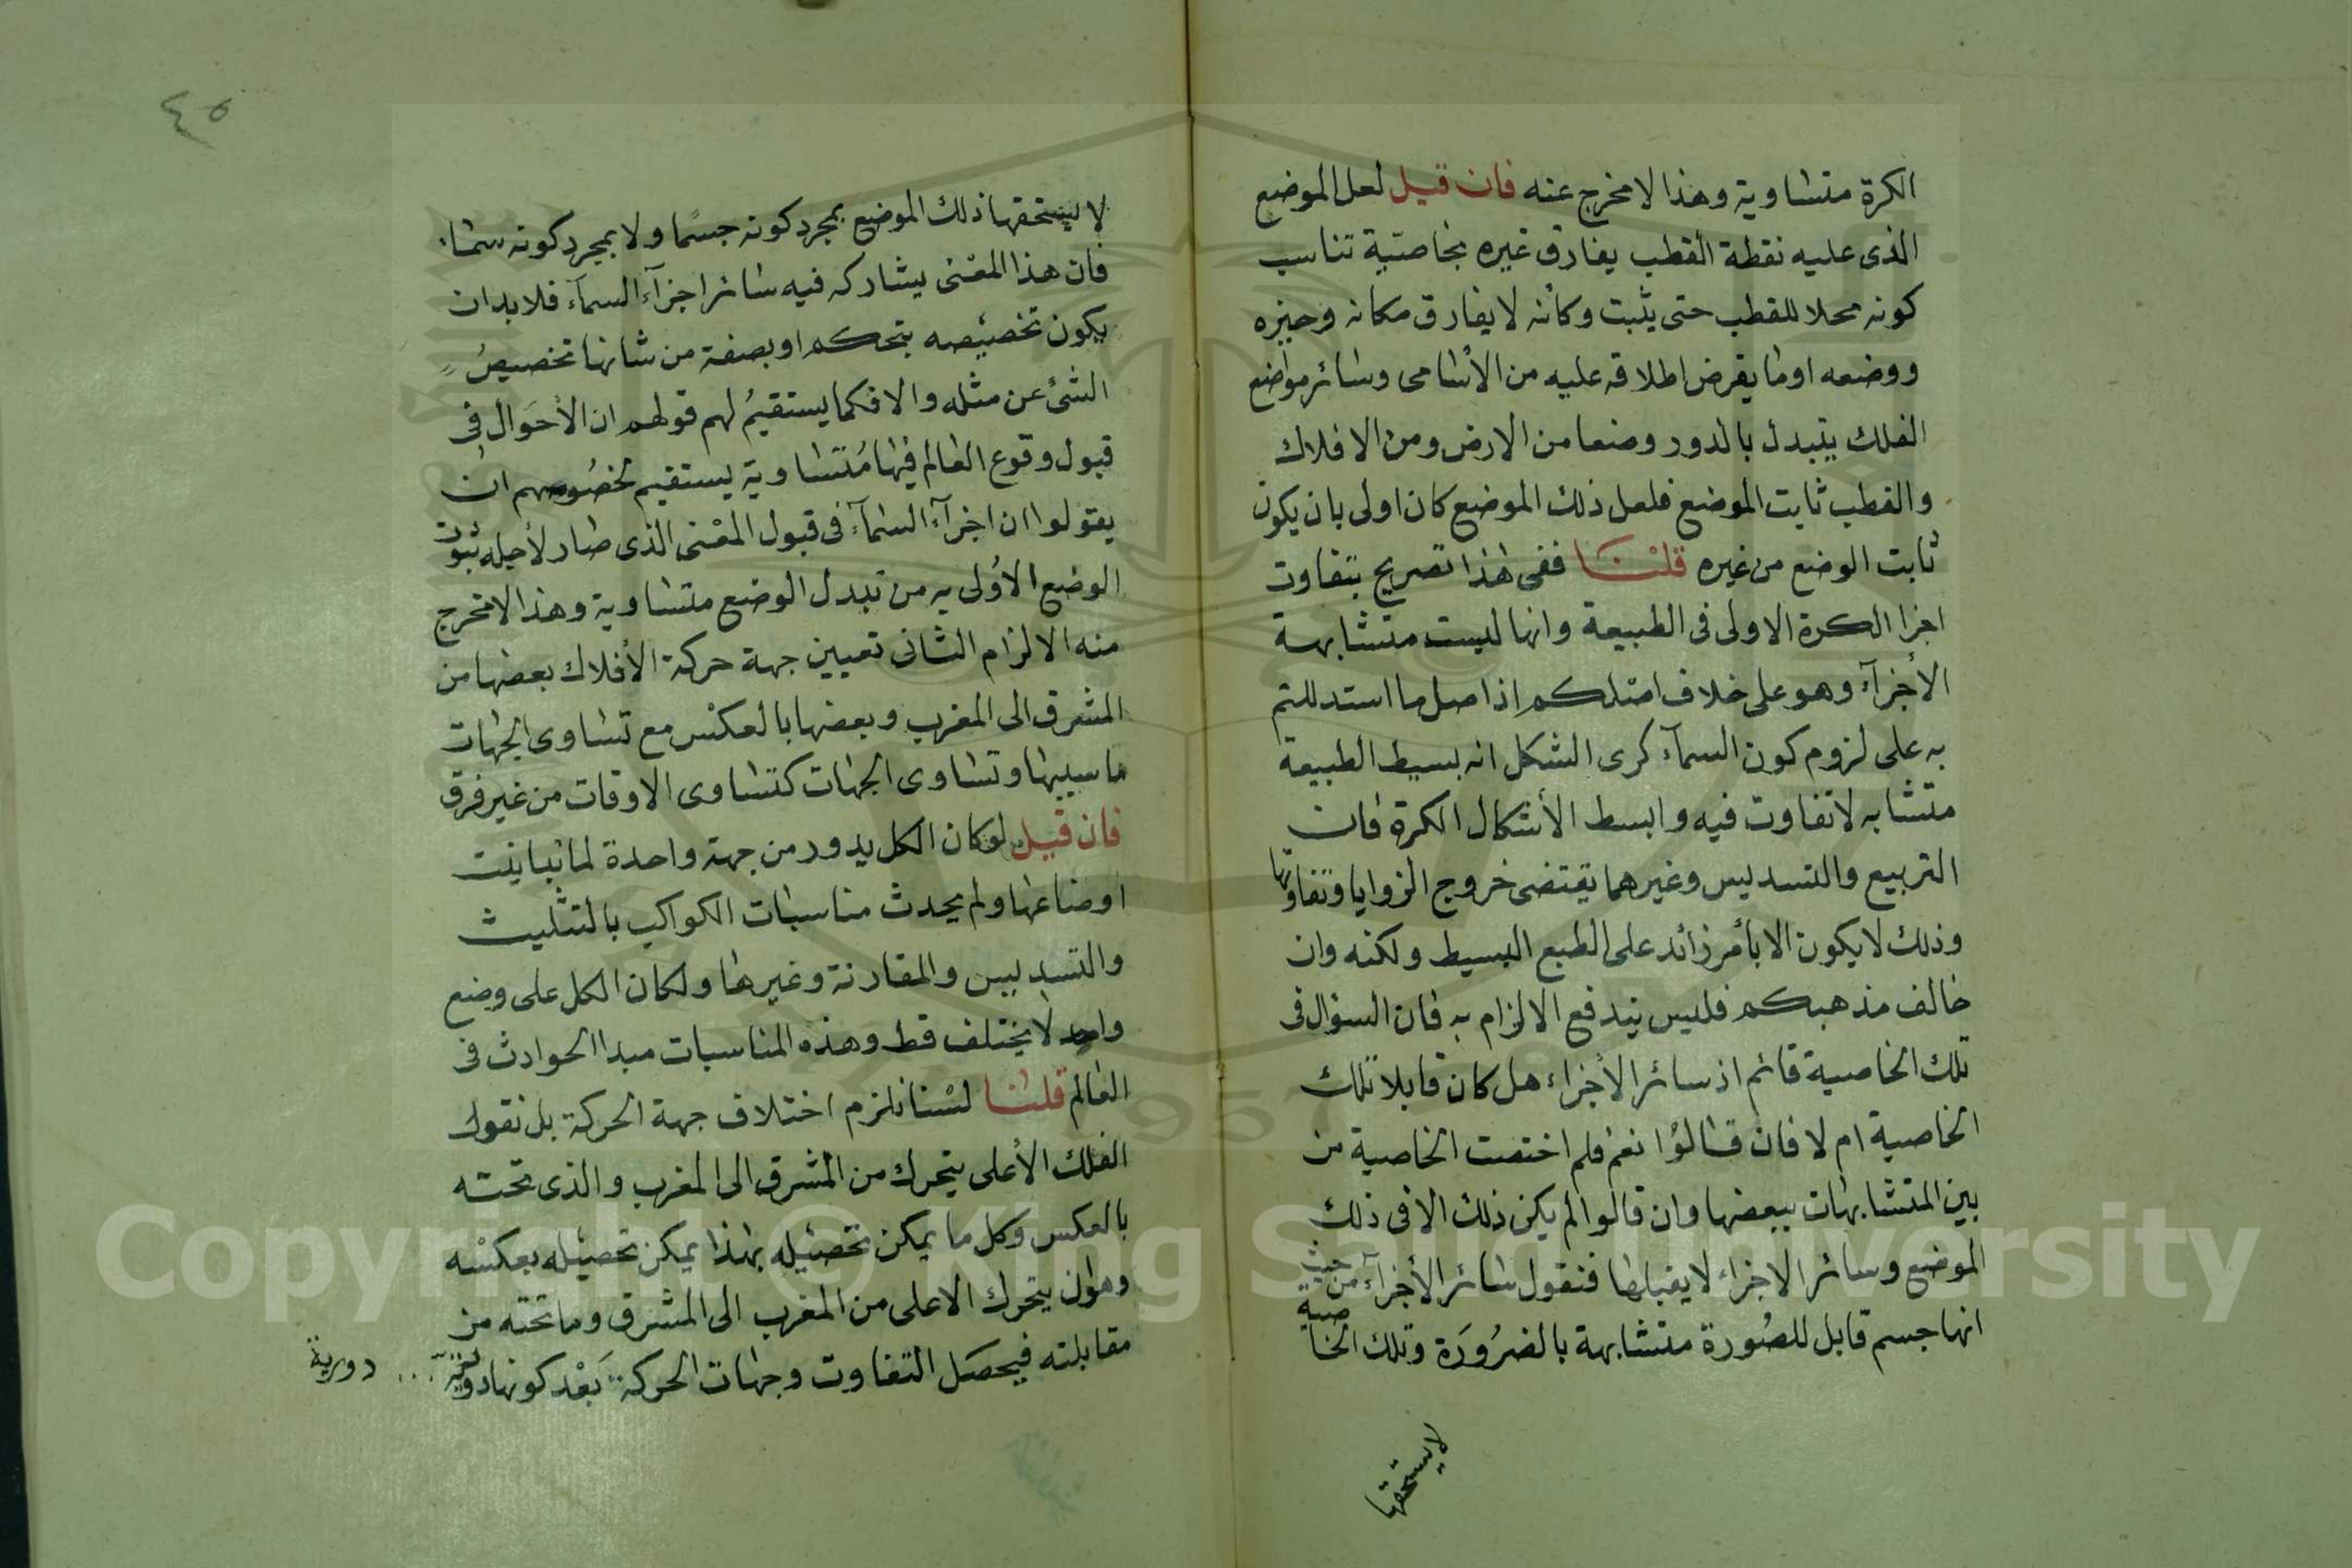 الكرة متساوية وهذا لا مخرج عنه فان قيل لعل الموضع
الذى عليه نقطة القطب يفارق غيره بخاصّية تناسب
كونه محلا للقطب حتى يثبت وكأنه لا يفارق مكانه وحيزه
ووضعه او ما يفرض اطلاقه عليه من الأسامى وسائر مواضع
الفلك يتبدل بالدور وضعها من الارض ومن الافلاك
والقطب ثابت الموضع فلعل ذلك الموضع كان اولى بان يكون
ثابت الوضع من غيره قلنا ففى هذا تصريح بتفاوت
اجزا الكرة الاولى فى الطبيعة وانها ليست متشابهة
الأجزآء وهو على خلاف اصلكم اذ اصل ما استدللتم
به على لزوم كون السمآء كرى الشكل انه بسيط الطبيعة
متشابه لا تفاوت فيه وابسط الأشكال الكرة فان
التربيع والتسديس وغيرهما يقتضى خروج الزوايا وتفاوتها
وذلك لا يكون الا بأمر زائد على الطبع البسيط ولكنه وان
خالف مذهبكم فليس يندفع الالزام به فان السؤال فى
تلك الخاصية قائم اذ سائر الأجزاء هل كان قابلا تلك
الخاصية ام لا فان قالوا نعم فلم اختصت الخاصية من
بين المتشابهات ببعضها وان قالوا لم يكن ذلك الا فى ذلك
الموضع وسائر الاجزاء لا يقبلها فنقول سائر الأجزآء من حيث
انها جسم قابل للصُورة متشابهة بالضرُورَة وتلك الخاصية
لا يستحقها
٤٥
لا يستحقها ذلك الموضع بمجرد كونه جسمًا ولا بمجرد كونه سماء
فان هذا المعنى يشاركه فيه سائر اجزآء السمآء فلا بد ان
يكون تخصيصه بتحكم او بصفة من شانها تخصيصُ
الشئ عن مثله والا فكما يستقيمُ لهم قولهم ان الأحوال فى
قبول وقوع العالم فيها مُتساوية يستقيم لخصُومهم ان
يقولوا ان اجزآء السمآء فى قبول المعنى الذى صار لأجله ثبوت
الوضع الأولى به من تبدل الوضع متساوية وهذا لا مخرج
منه الالزام الثانى تعيين جهة حركة الأفلاك بعضها من
المشرق الى المغرب وبعضها بالعكس مع تساوى الجهات
ما سببها وتساوى الجهات كتساوى الاوقات من غير فرق
فان قيل لو كان الكل يدور من جهة واحدة لما تباينت
اوضاعها ولم يحدث مناسبات الكواكب بالتثليث
والتسديس والمقارنة وغيرها ولكان الكل على وضع
واحد لا يختلف قط وهذه المناسبات مبدا الحوادث فى
العالم قلنا لسنا نلزم اختلاف جهة الحركة بل نقول
الفلك الأعلى يتحرك من المشرق الى المغرب والذى تحته
بالعكس وكل ما يمكن تحصيله بهذا يمكن تحصيله بعكسه
وهو ان يتحرك الاعلى من المغرب الى المشرق وما تحته من
مقابلته فيحصل التفاوت وجهات الحركة بَعْد كونها
دورية
Copyright © King Saud University
1957